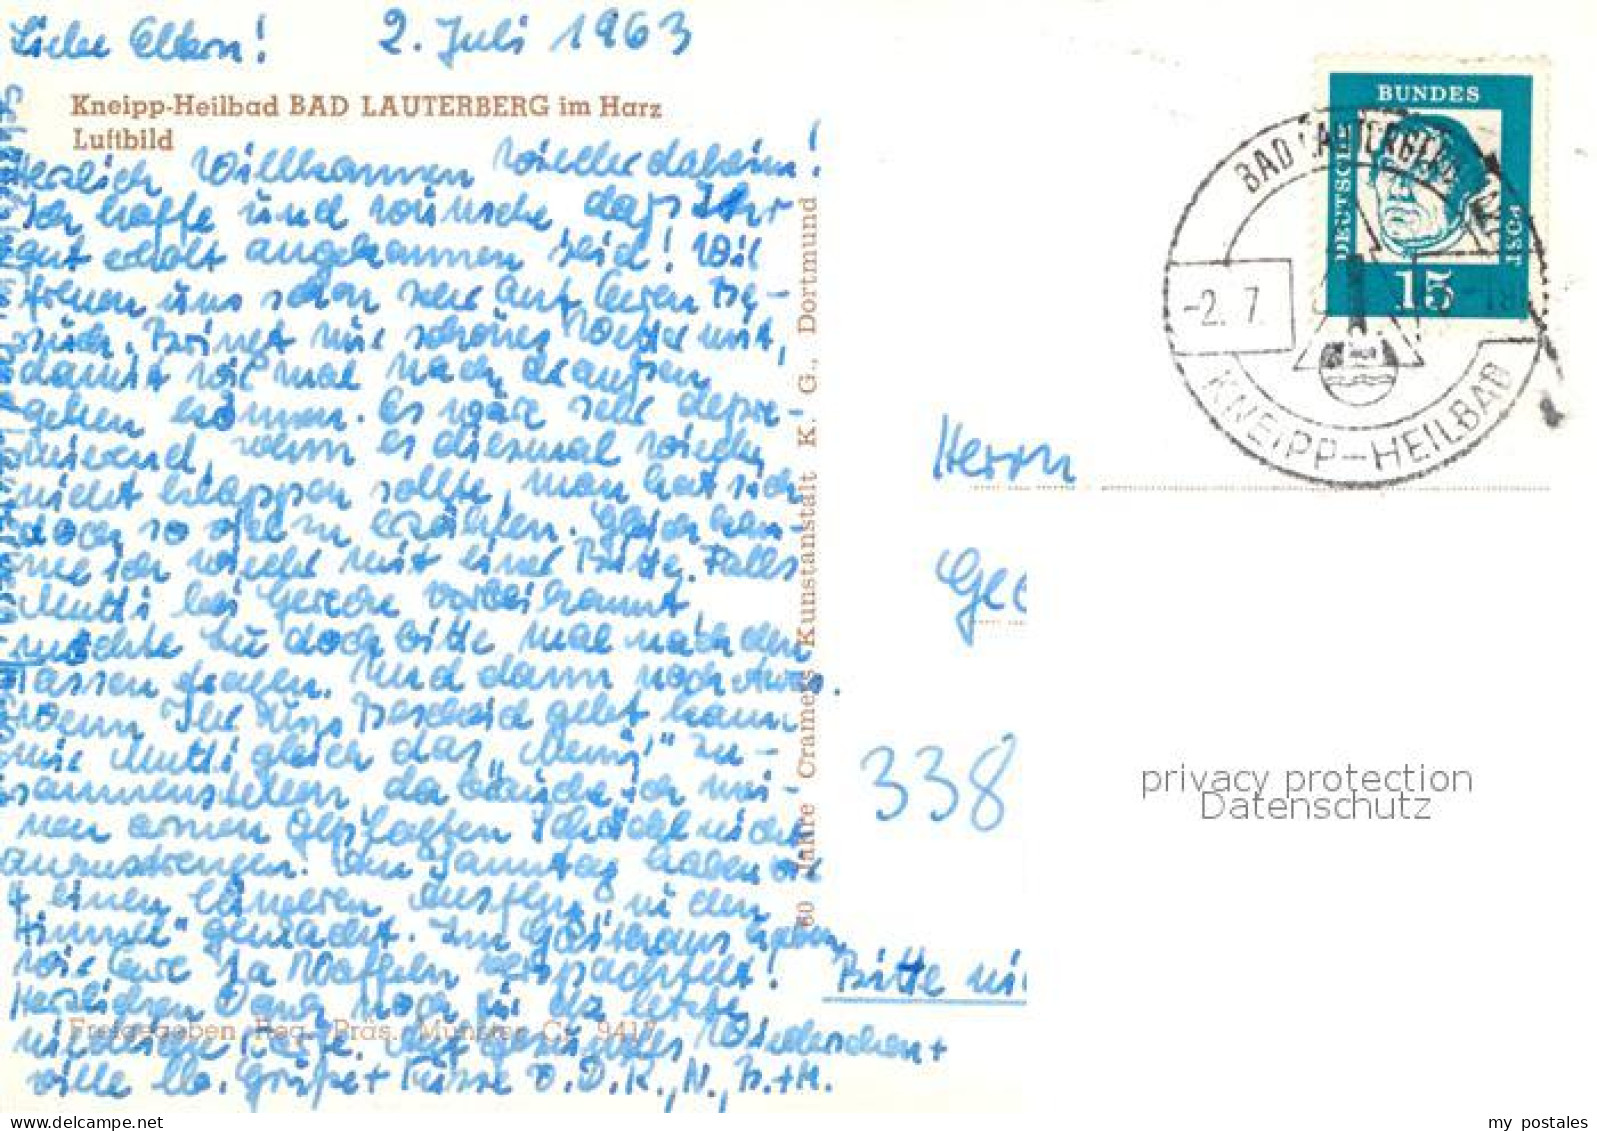 Liebe Eltern! 2. Juli 1963
Kneipp-Heilbad BAD LAUTERBERG im Harz
Luftbild
Herzlich Willkommen wieder daheim!
Ich hoffe und wünsche daß Ihr
gut erholt angekommen seid! Wir
freuen uns schon sehr auf Euren Be-
such. Bringt nur schönes Wetter mit,
damit wir mal nach draußen
gehen können. Es wäre sehr depri-
mierend, wenn es diesmal wieder
nicht klappen sollte, man hat sich
doch so viel zu erzählen. Gleich kom-
me ich wieder mit einer Bitte. Falls
Mutti bei vorbeikommt
möchte sie doch bitte mal nach den
Tassen fragen. Und dann noch etwas.
Wenn Ihr uns Bescheid gebt kann
mir Mutti gleich das "Menü" zu-
sammenstellen, da brauche ich mei-
nen armen geplagten Schädel nicht
anzustrengen! Am Sonntag haben wir
einen kleineren Ausflug in den
"Himmel" gemacht. Im Gasthaus haben
wir Waffeln verspachtelt!
Herzlichen Dank noch für die letzte
niedliche Karte. Auf gesundes Wiedersehen +
viele lb. Grüße + Küsse v. D. K., N., B. + M.
60 Jahre Cramers Kunstanstalt K. G., Dortmund
Freigegeben Reg. Präs. Münster Cr. 9417
BUNDES
DEUTSCHE
POST
15
BAD LAUTERBERG
-2. 7.
KNEIPP-HEILBAD
Herrn
338
privacy protection
Datenschutz
Bitte
my postales